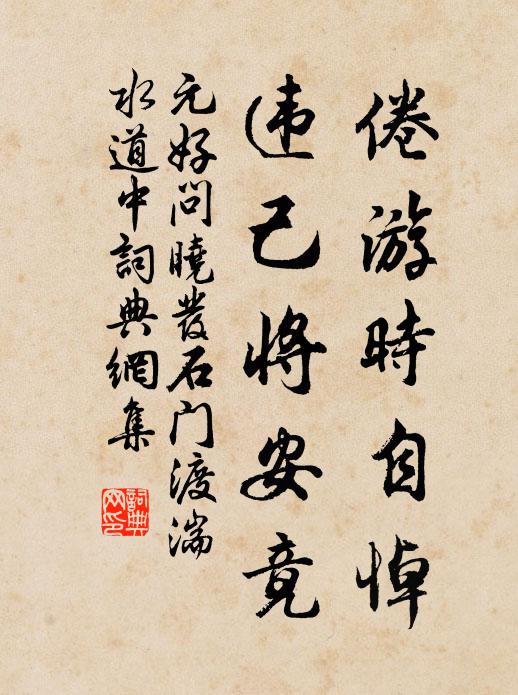 倦游時自悼
违己将安竟
元好問曉發石门渡湍
水道中詞典網集
詞典網印